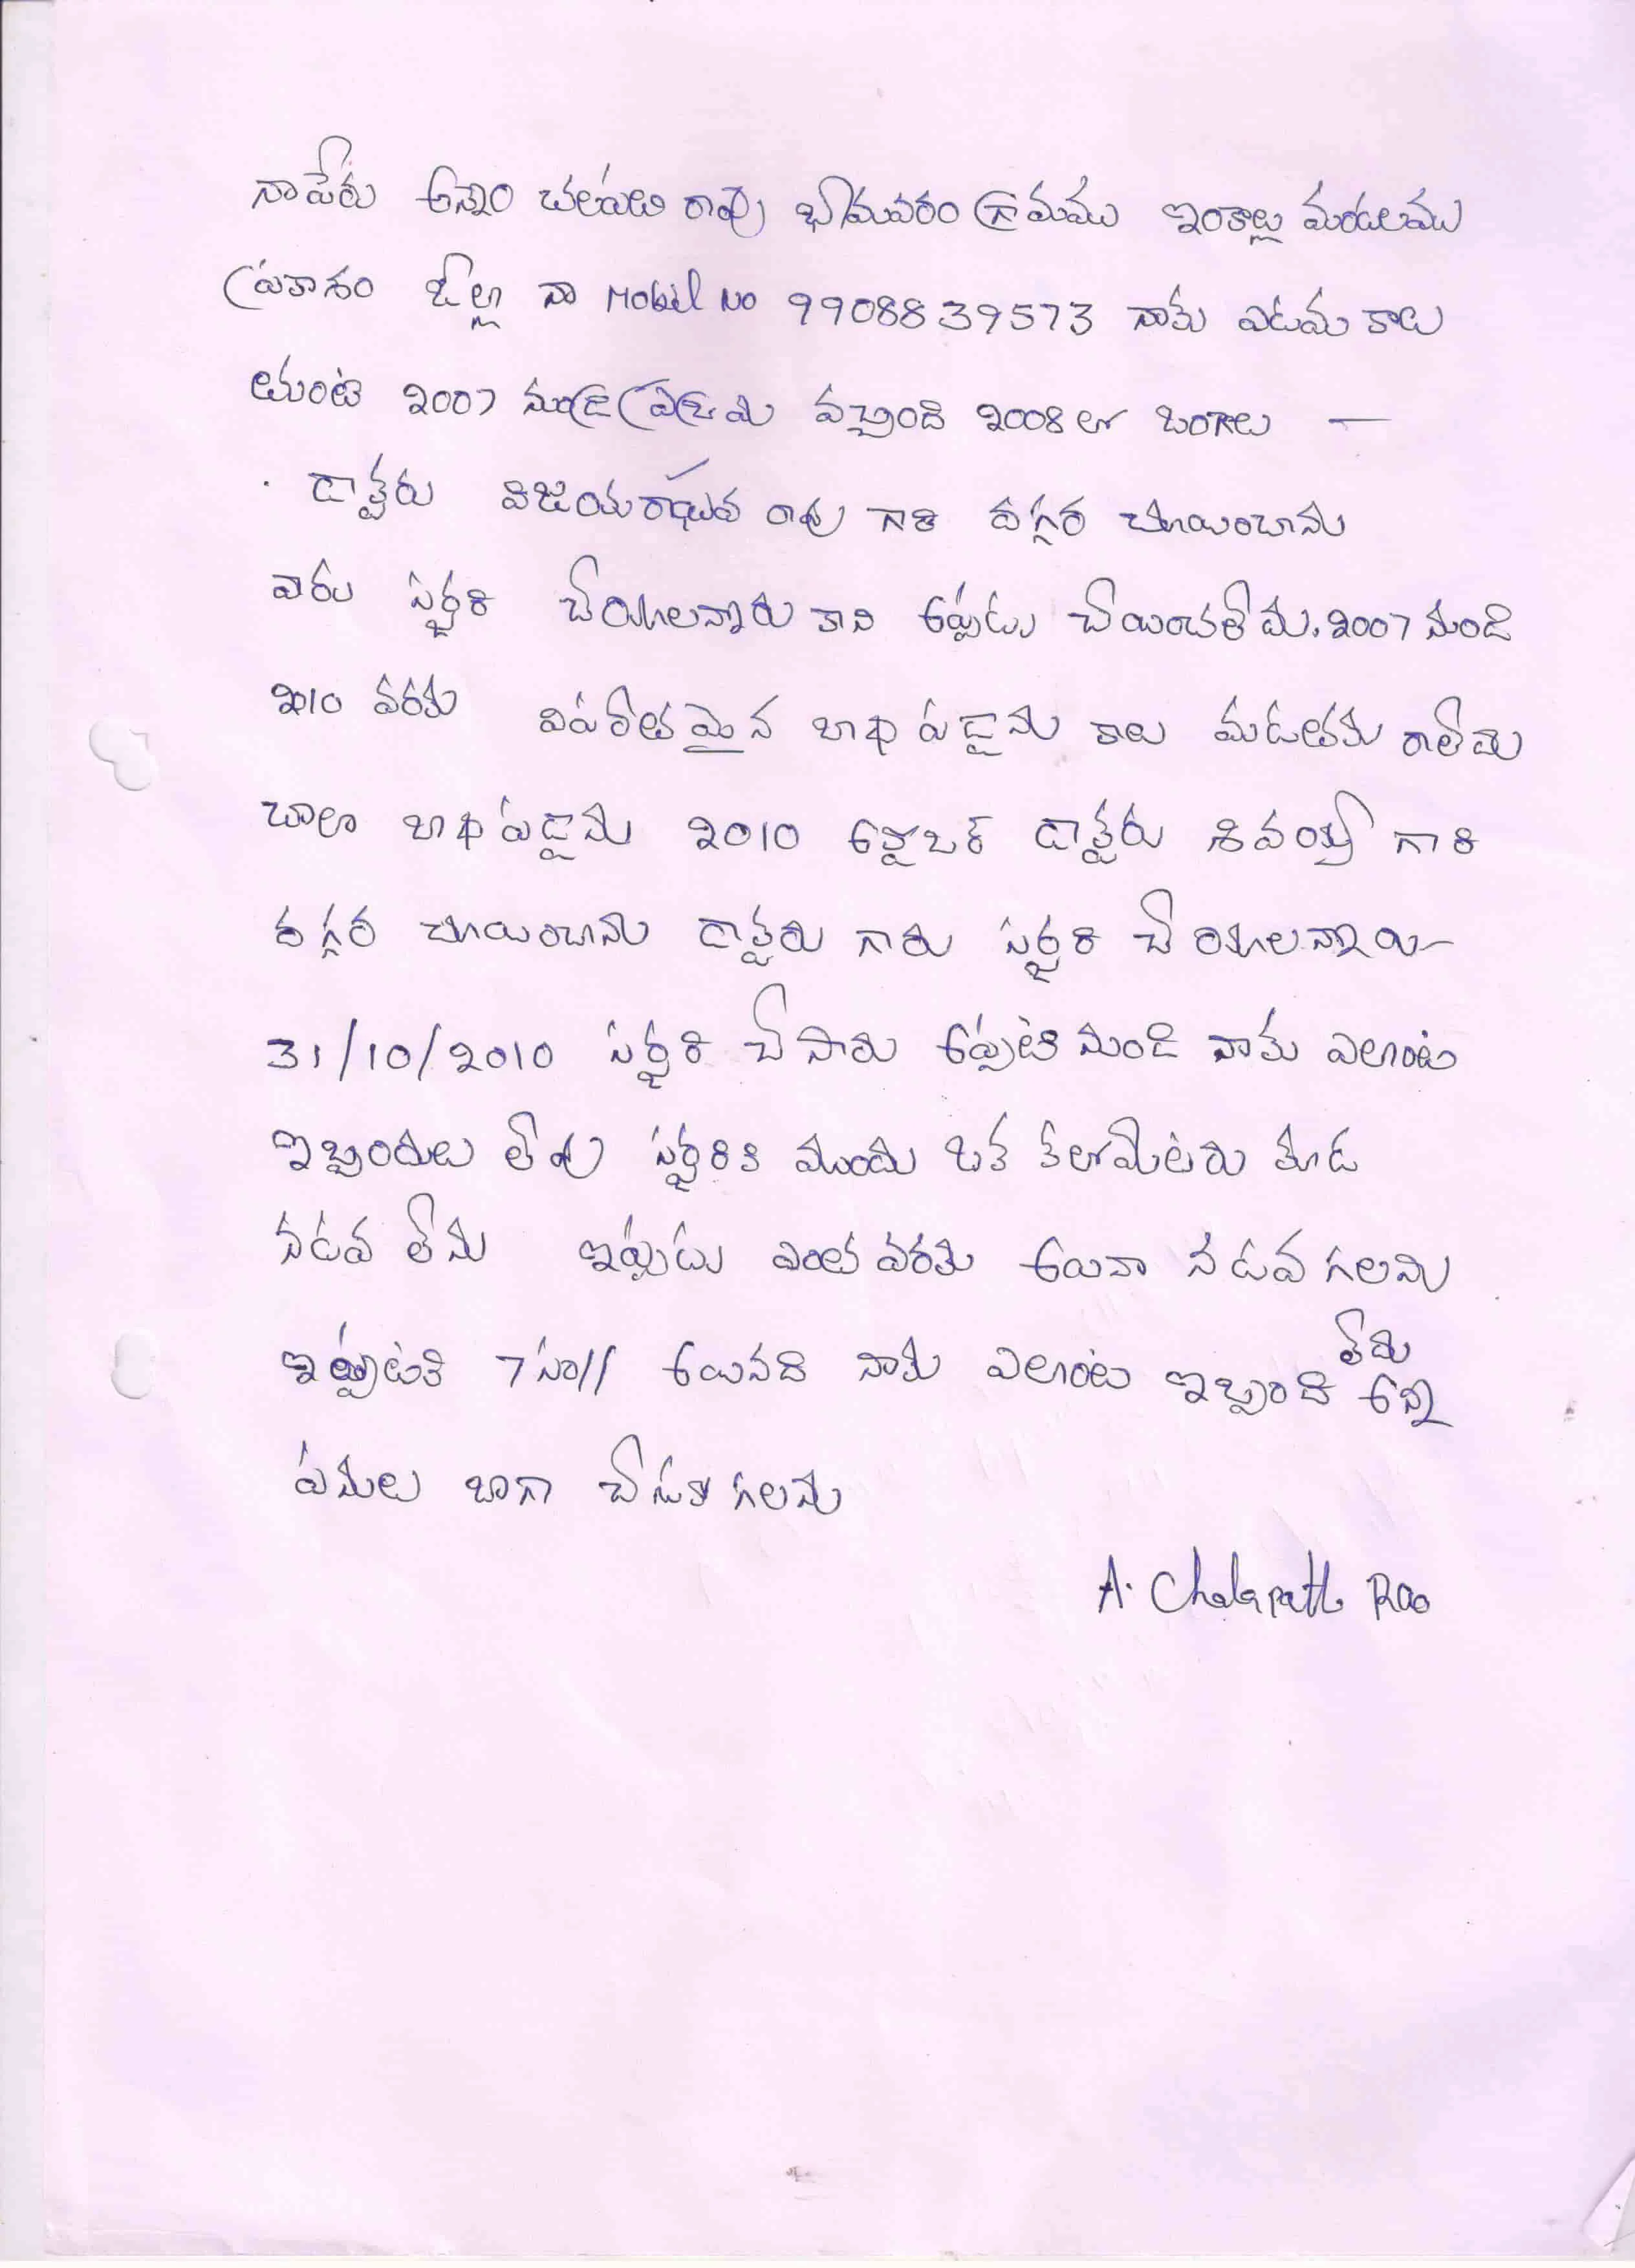 నాపేరు అన్నం చలపతి రావు భీమవరం గ్రామము ఇంకొల్లు మండలము
ప్రకాశం జిల్లా నా Mobil No 9908839573 నాకు ఎడమ కాలు
2007 నుండి వచ్చింది 2008 లో ఒంగోలు —
డాక్టరు విజయరాఘవ రావు గారి దగ్గర చూయించాను
వారు సర్జరి చేయాలన్నారు కాని అప్పుడు చేయించలేదు. 2007 నుండి
2010 వరకు విపరీతమైన బాధ పడ్డాను కాలు మడతకు రాలేదు
చాలా బాధ పడ్డాను 2010 అక్టోబర్ డాక్టరు గారి
దగ్గర చూయించాను డాక్టరు గారు సర్జరి చేయాలన్నారు
31/10/2010 సర్జరి చేసారు అప్పటి నుండి నాకు ఎలాంటి
ఇబ్బందులు లేవు సర్జరికి ముందు ఒక కిలోమీటరు కూడ
నడవ లేను ఇప్పుడు ఎంత వరకు అయినా నడవ గలను
ఇప్పటికి 7 సం|| అయినది నాకు ఎలాంటి ఇబ్బంది లేదు అన్ని
పనులు బాగా గలను
A. Chalapathi Rao